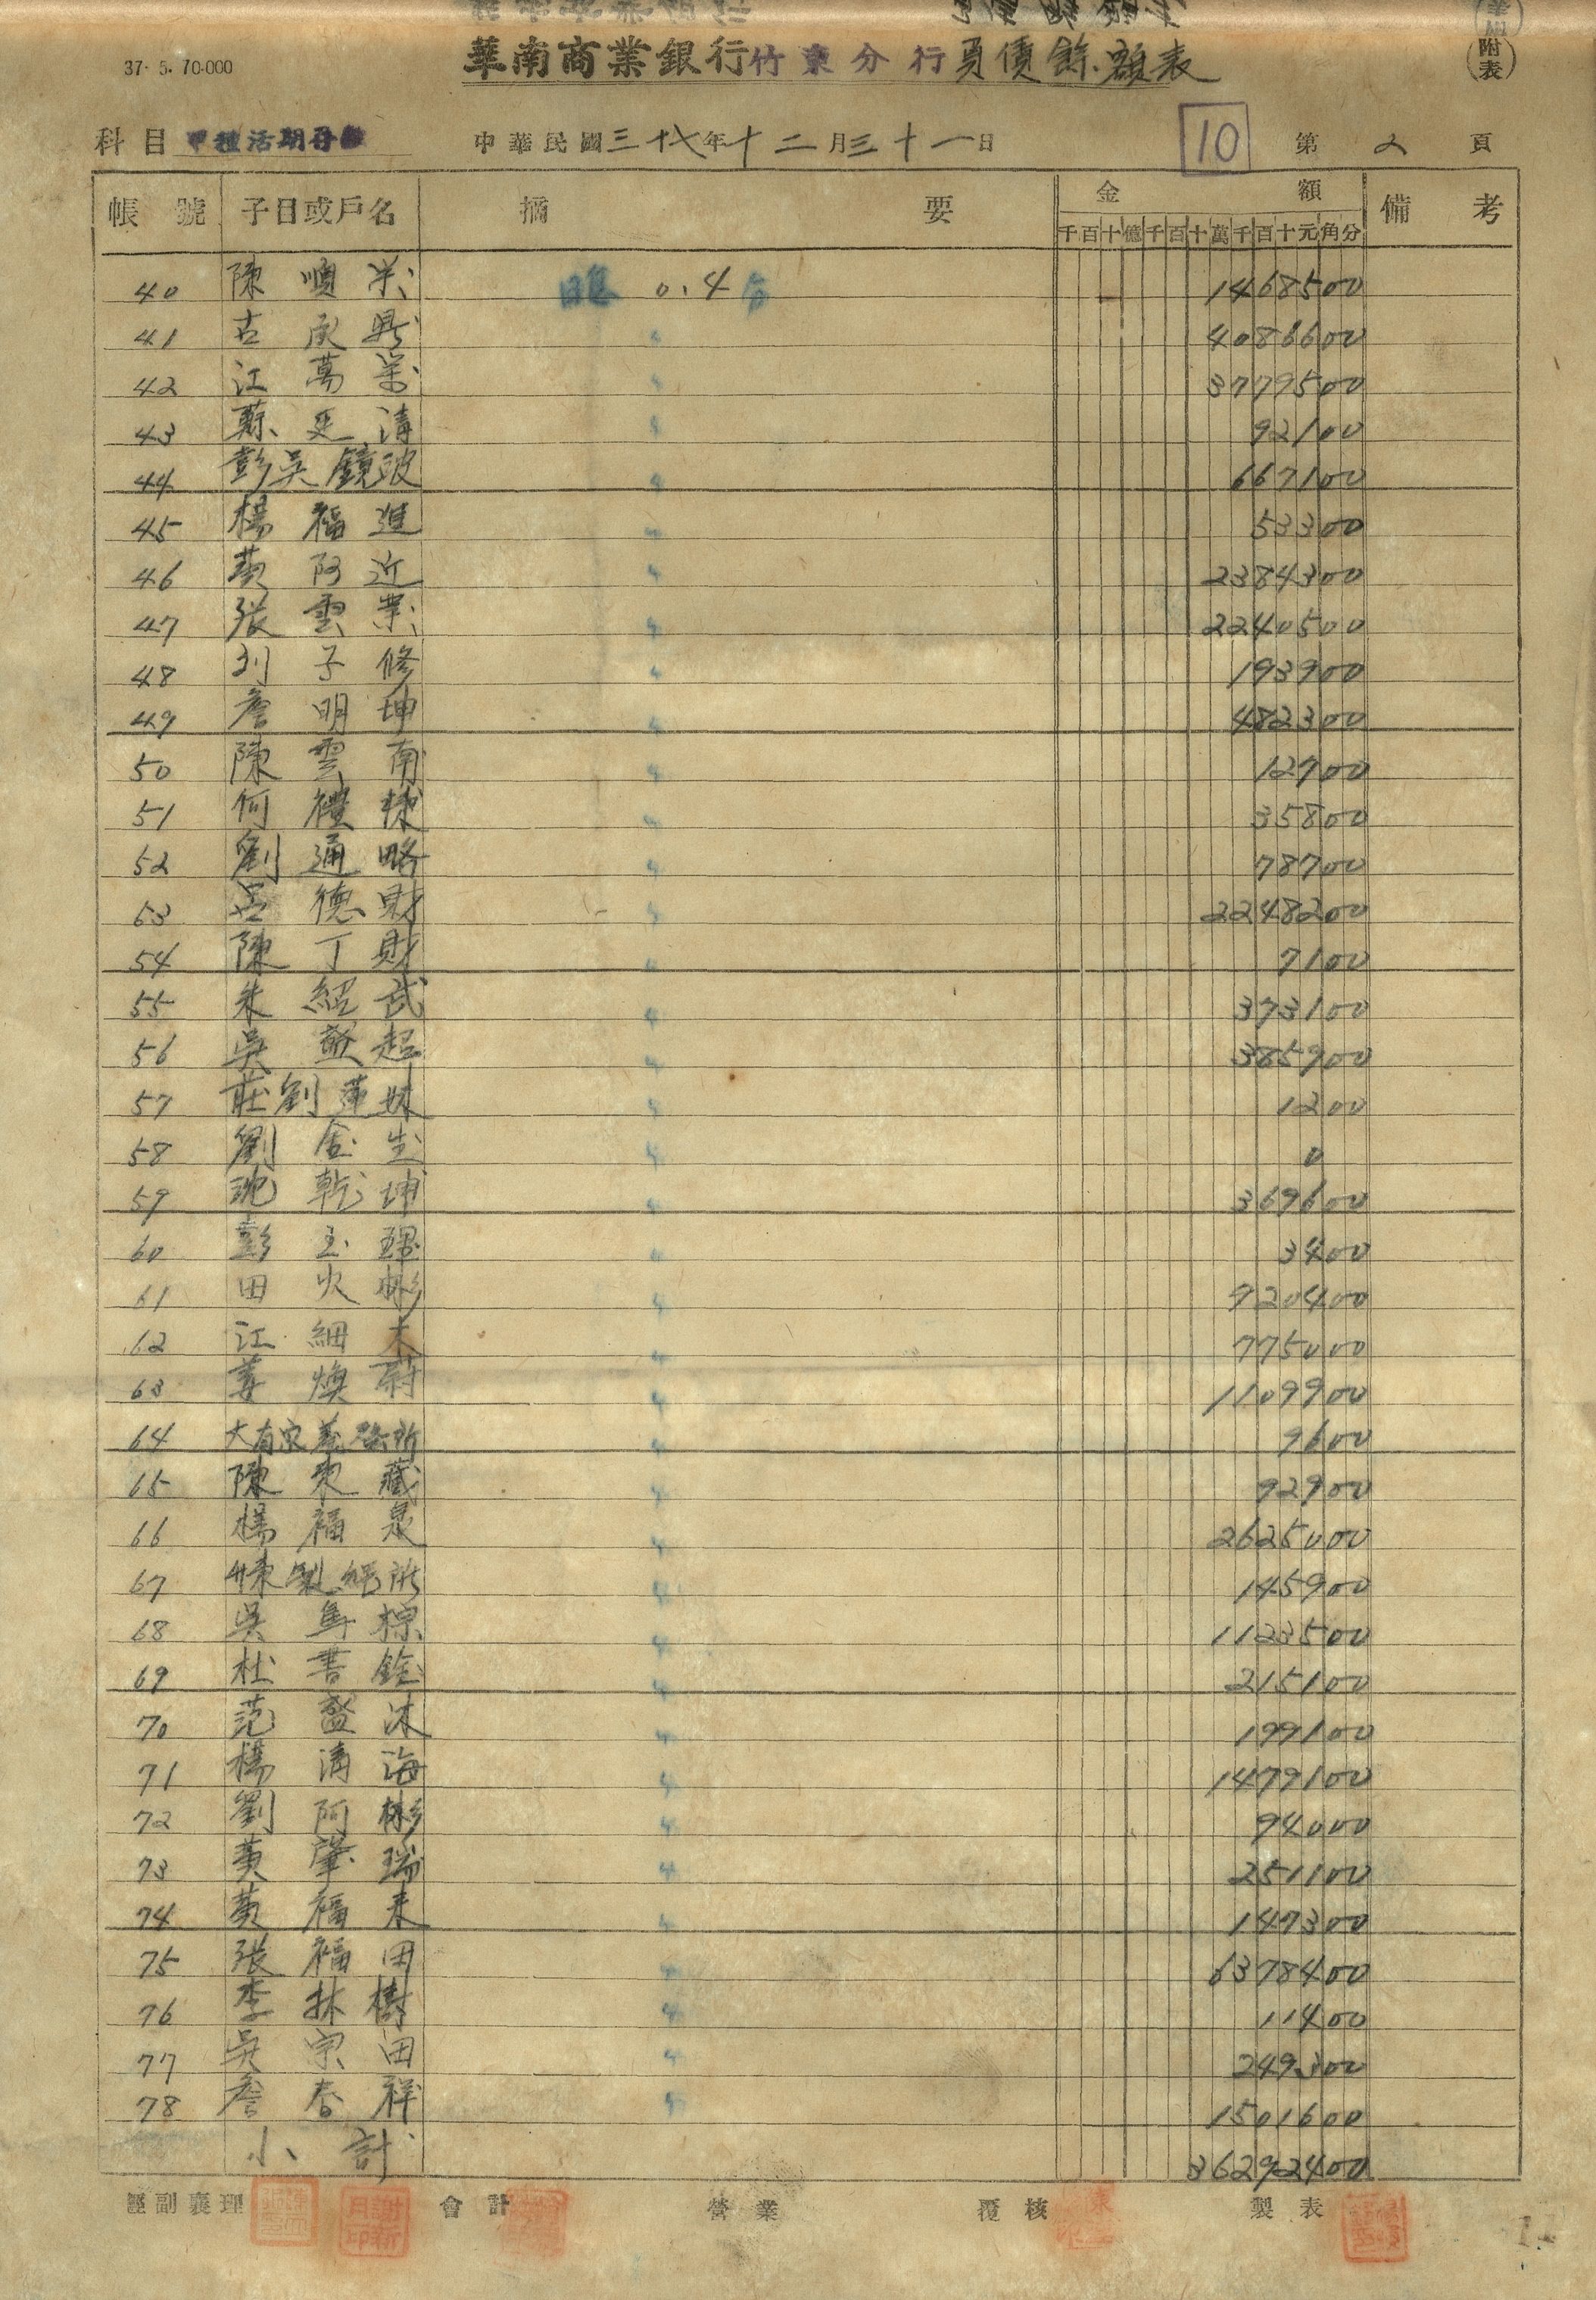 (附表)
37. 5. 70.000
華南商業銀行竹東分行負債餘額表
科目 甲種活期存款 中華民國三十七年十二月三十一日 10 第 2 頁
帳號 子目或戶名 摘要 金額 備考
千百十億千百十萬千百十元角分
40 陳順業 0.4 1468500
41 古承興 4086600
42 江萬業 3779500
43 蘇廷清 92100
44 彭吳鏡波 667100
45 楊福進 53300
46 黃阿近 2384300
47 張雲業 2240500
48 刘子修 193900
49 詹明坤 482300
50 陳雲南 12700
51 何禮棫 35800
52 劉通略 78700
53 呂德財 2248200
54 陳丁財 7100
55 朱紹武 373100
56 吳盛超 385900
57 莊劉蓮妹 1200
58 劉金生 0
59 沈乾坤 369600
60 彭玉琚 3400
61 田火彬 920400
62 江細木 775000
63 姜煥蔚 1109900
64 大有 所 9600
65 陳東藏 92900
66 楊福泉 2625000
67 竹東製繩所 145900
68 吳隼樑 1123500
69 杜書銓 215100
70 范盛沐 199100
71 楊清海 1479100
72 劉阿彬 94000
73 黃肇瑞 251100
74 黃福来 147300
75 張福田 6378400
76 李林樹 11400
77 吳宗田 249300
78 詹春祥 1501600
小計 36292400
經副襄理 會計 營業 覆核 製表